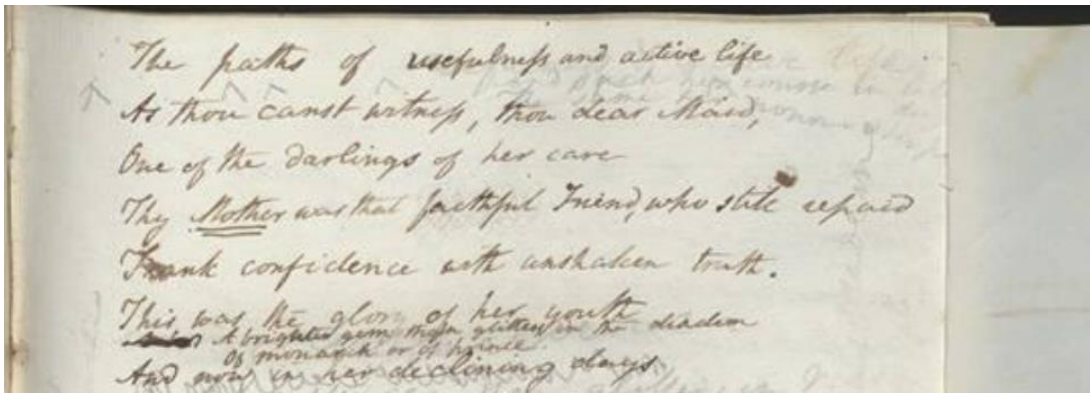 The paths of usefulness and active life
As thou canst witness, thou dear Maid,
One of the darlings of her care
Thy Mother was that faithful Friend, who still repaid
Frank confidence with unshaken truth.
This was the glory of her youth
A brighter gem than glitters in the diadem
Of monarch or of prince
And now in her declining days